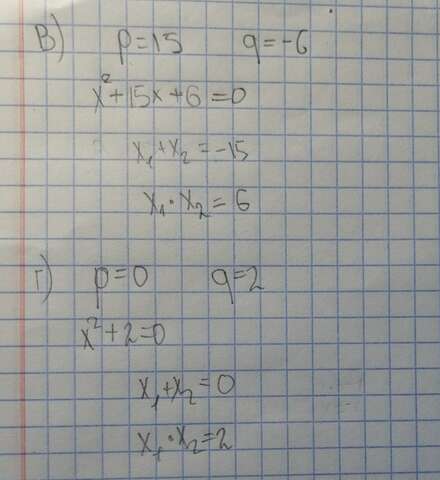 В) p=15 q=-6
x²+15x+6=0
x₁+x₂=-15
x₁·x₂=6
Г) p=0 q=2
x²+2=0
x₁+x₂=0
x₁·x₂=2